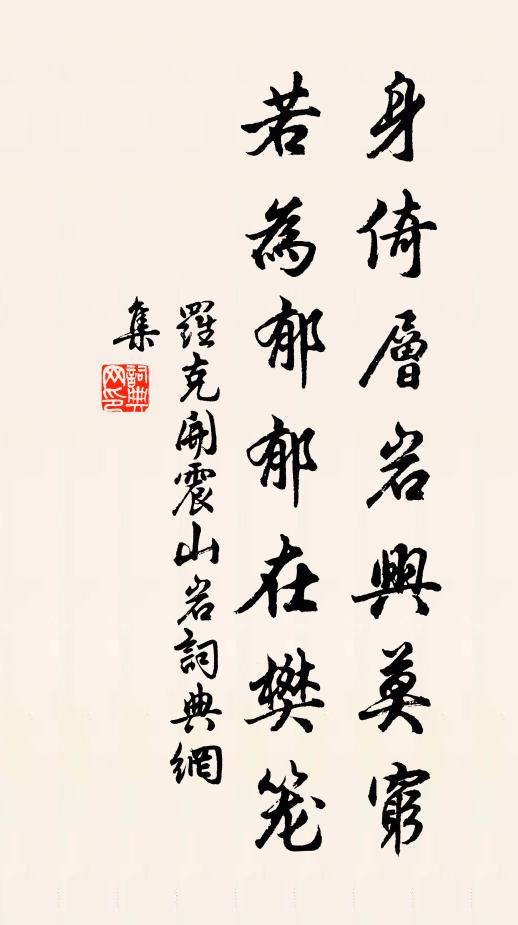 身倚層岩興莫窮
若為郁郁在樊笼
羅克開震山岩詞典網
集
詞典
网印